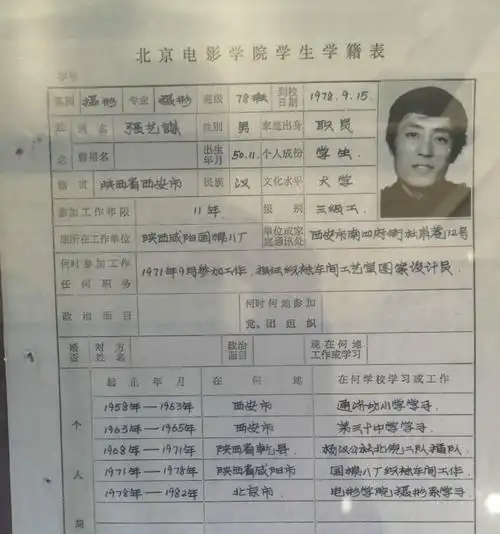 北京电影学院学生学籍表
学号
系别 摄影 专业 摄影 班级 78班 到校日期 1978.9.15.
姓名 现名 张艺謀 性别 男 家庭出身 职员
曾用名 出生年月 50.11. 个人成份 学生
籍贯 陕西省西安市 民族 汉 文化水平 大学
参加工作年限 11年 级别 三级工
原所在工作单位 陕西咸阳国棉八厂 单位或家庭通讯处 西安市南四府街 12号
何时参加工作任何职务 1971年9月参加工作,担任织袜车间工艺室图案设计员.
政治面目 何时何地参加党、团组织
婚否 对方姓名 政治面目 现在何地工作或学习
个人简
起止年月 在何地 在何学校学习或工作
1958年—1963年 西安市 通济坊小学学习.
1963年—1965年 西安市 第三十中学学习.
1968年—1971年 陕西省乾县. 杨汉公社北倪二队插队.
1971年—1978年 陕西省咸阳市 国棉八厂织袜车间工作.
1978年—1982年 北京市. 电影学院摄影系学习.